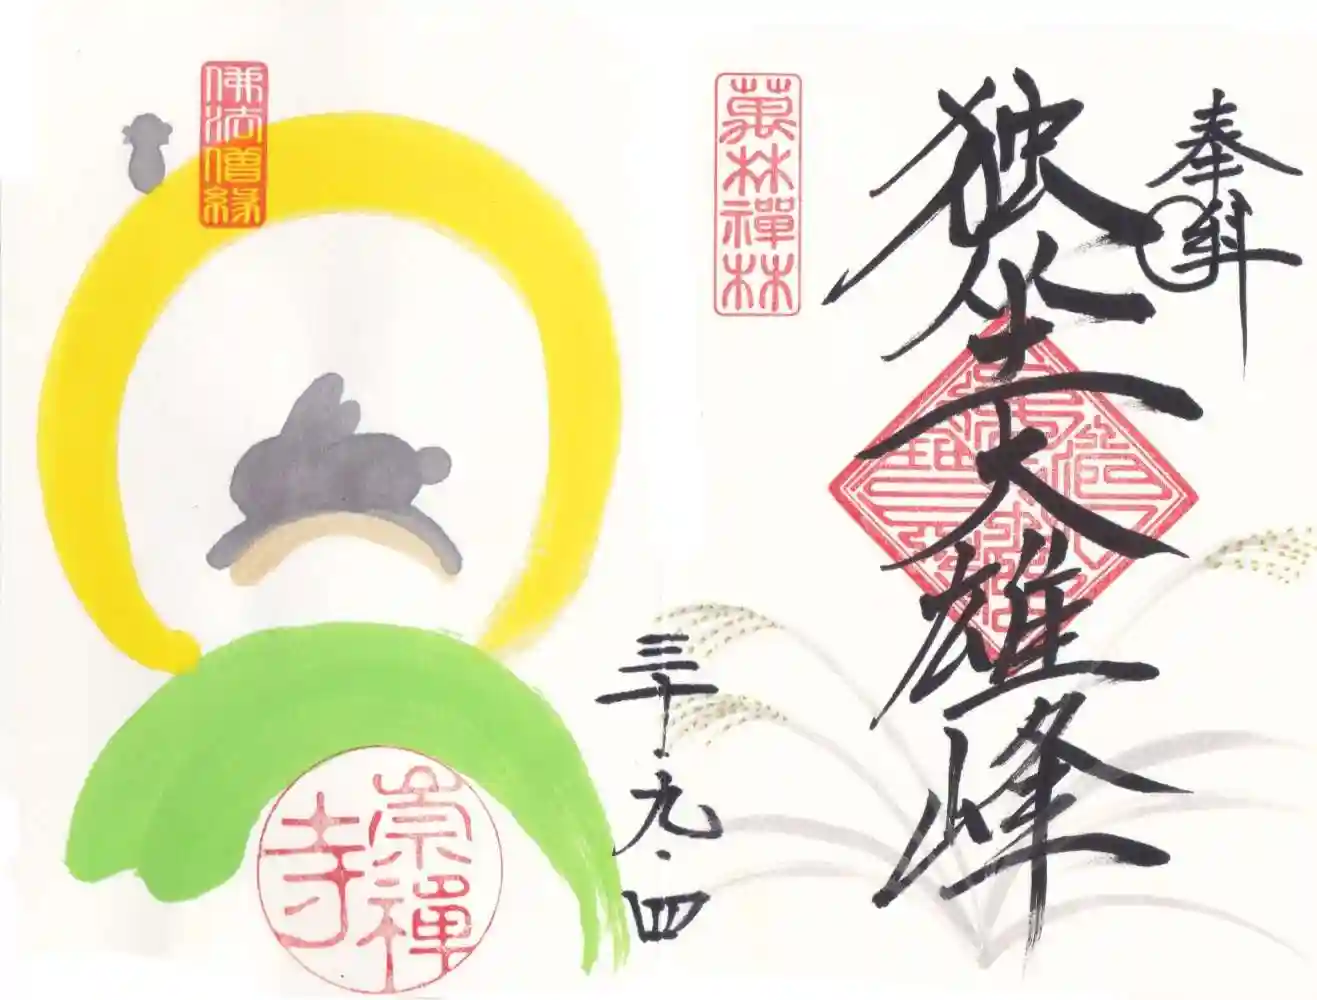 奉拝
独坐大雄峰
萬林禪林
三十・九・四
佛法僧縁
崇禅寺